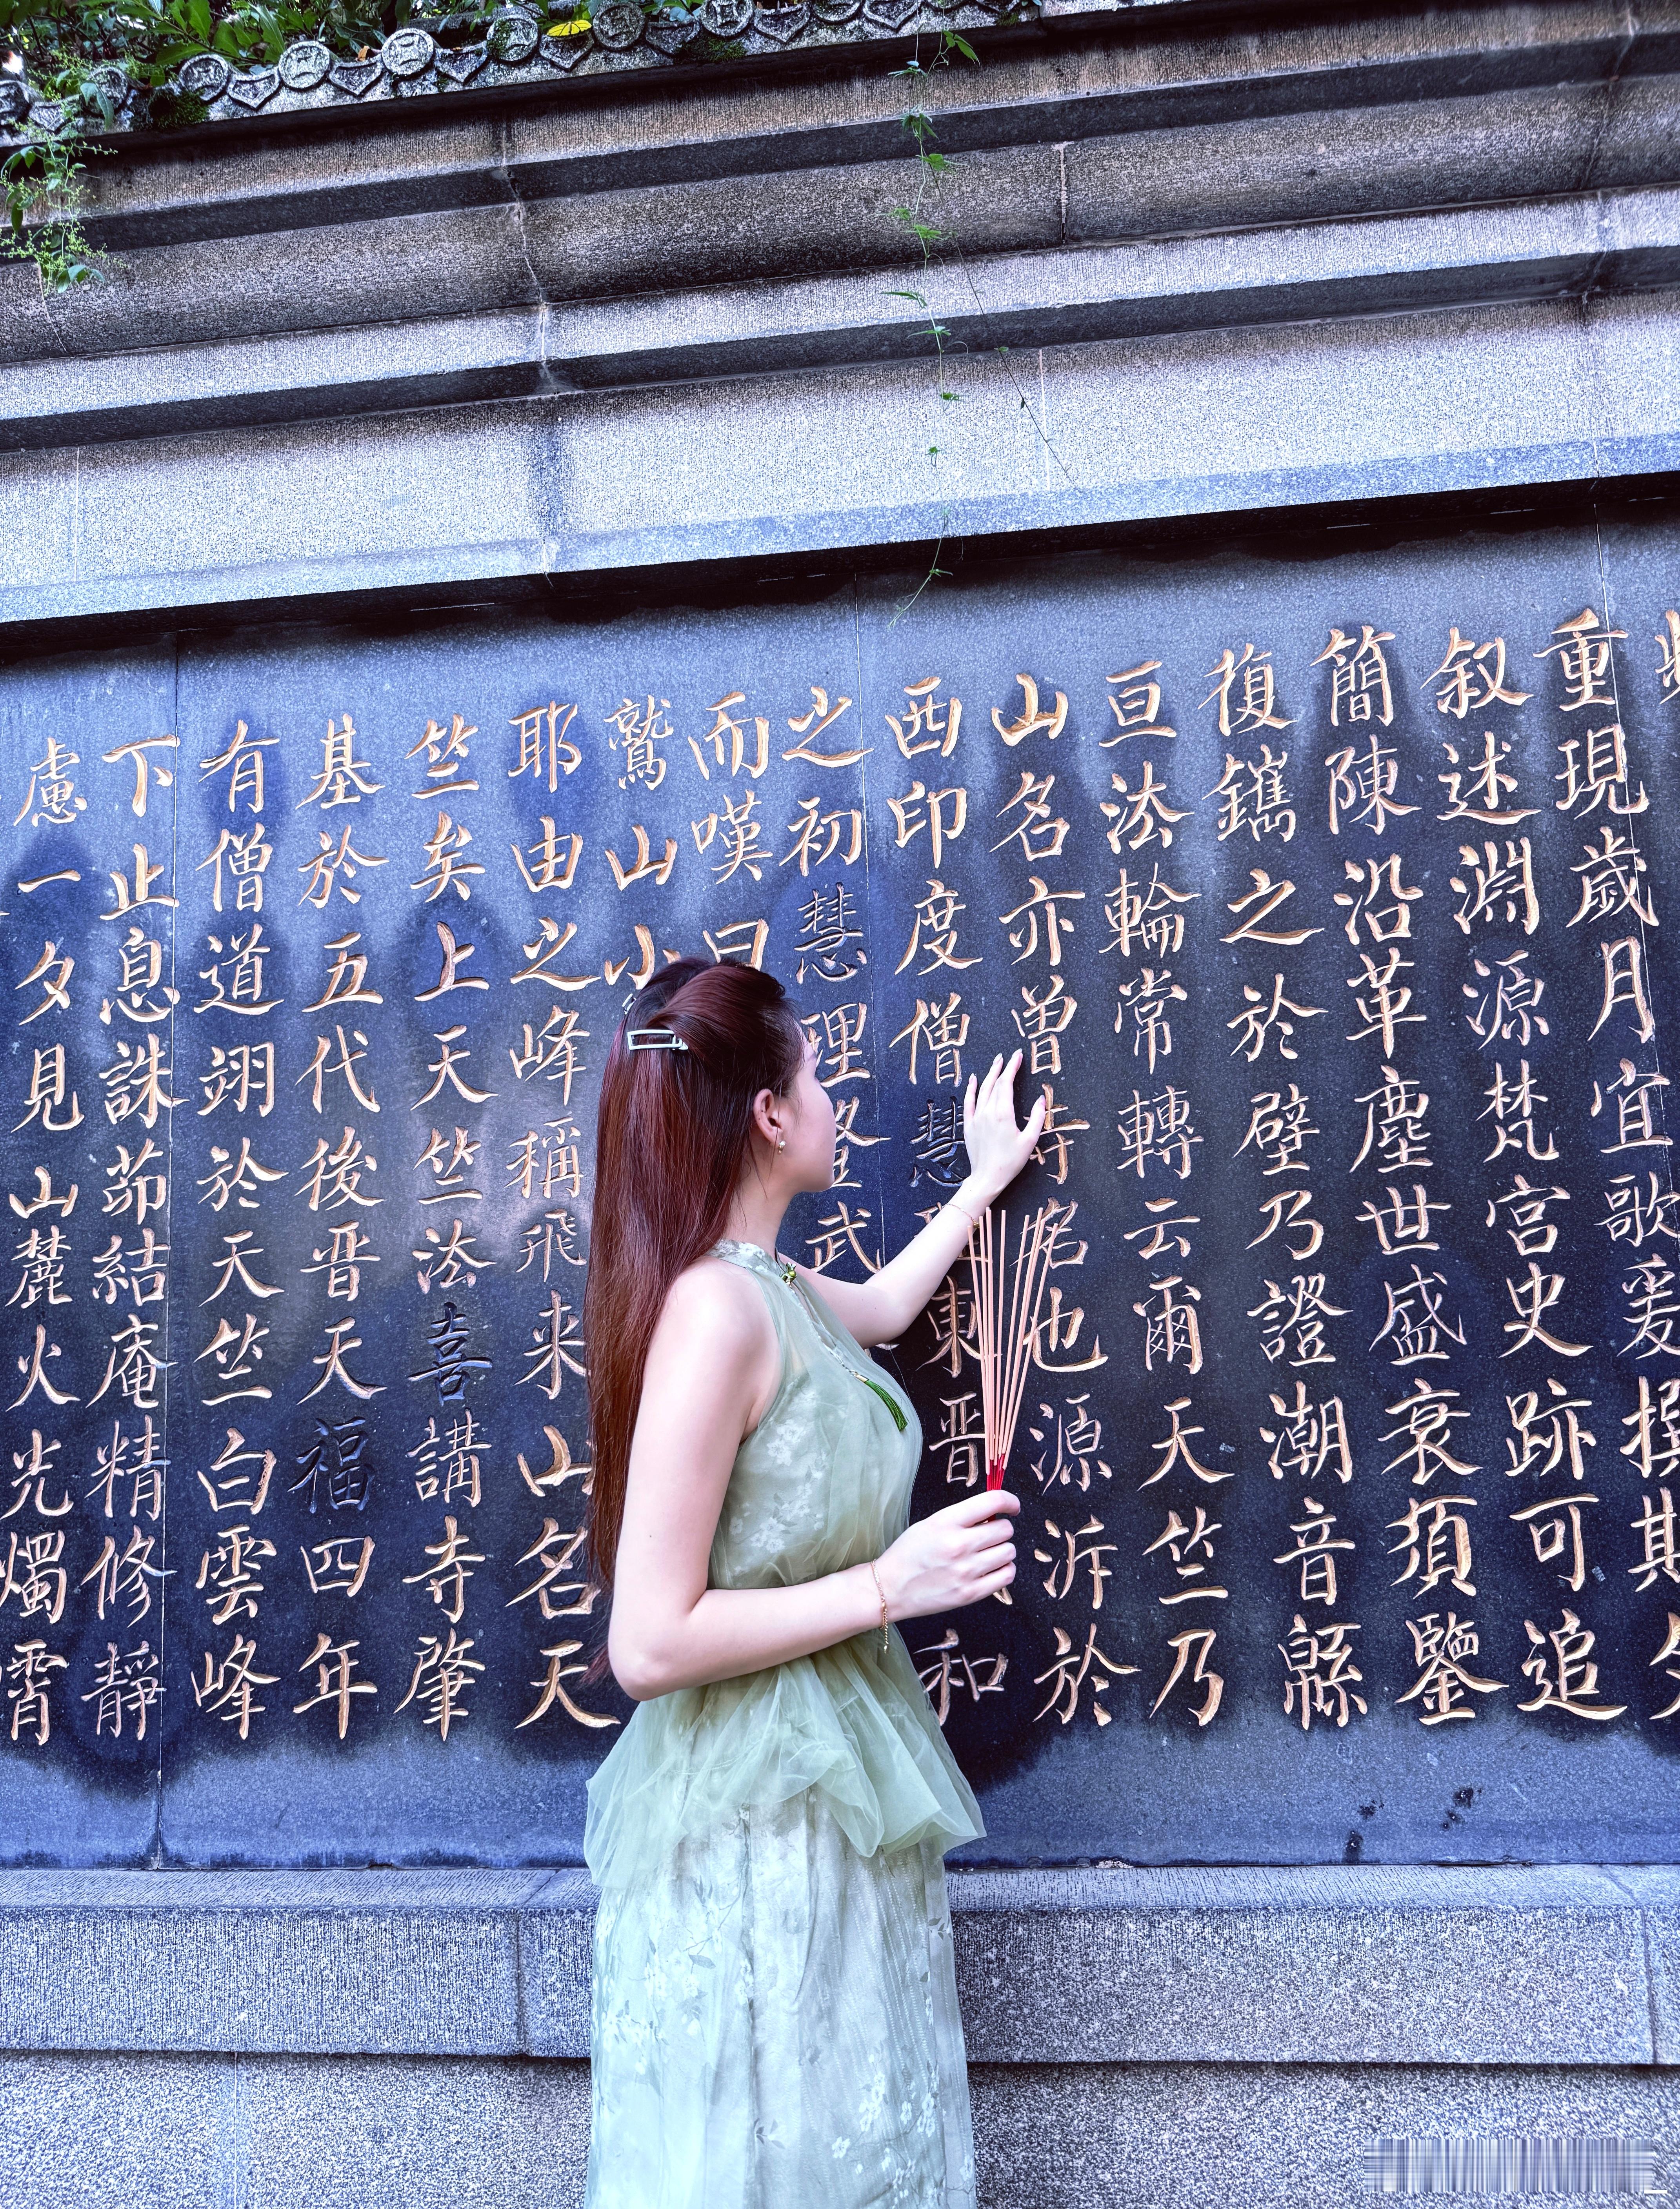 重現歲月宜歌爰撰
叙述淵源梵宮史跡可追
簡陳沿革塵世盛衰須鑒
復鐫之於壁乃證潮音緜
亘法輪常轉云爾天竺乃
山名亦曾寺名也源泝於
西印度僧慧東晉和
之初慧理登武
而嘆曰
鷲山小
耶由之峰稱飛来山名天
竺矣上天竺法喜講寺肇
基於五代後晋天福四年
有僧道翊於天竺白雲峰
下止息誅茆結庵精修靜
慮一夕見山麓火光燭霄